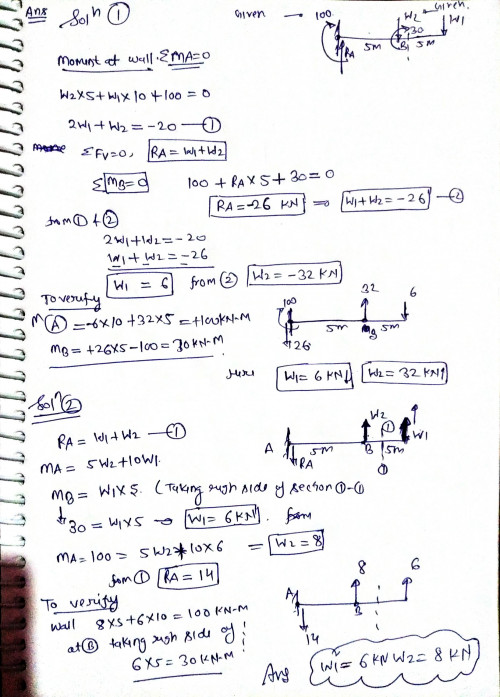 Ans Solⁿ ①
Given → 100
W2 Given.
W1
30
RA
5M B 5M
Moment at wall. ΣMA=0
W2×5+W1×10+100=0
2W1+W2=-20 —①
ΣFV=0, RA=W1+W2
ΣMB=0 100+RA×5+30=0
RA=-26 KN ⇒ W1+W2=-26 —②
from ① & ②
2W1+W2=-20
W1+W2=-26
W1 = 6 from ② W2=-32KN
To verify
MA =-6×10+32×5=+100KN-M
MB=+26×5-100=30KN-M
100 32 6
5M MB 5M
26
W1=6KN↓ W2=32KN↑
Solⁿ ②
RA=W1+W2 —①
MA=5W2+10W1
MB=W1×5. (Taking righ side of section ①-①
30=W1×5 → W1=6KN
MA=100= 5W2+10×6 = W2=8
from ① RA=14
W2 ① W1
A 5M B 5M
RA ①
To verify
wall 8×5+6×10=100KN-M
at B taking righ side of
6×5=30KN-M
8 6
A B
14
Ans W1=6KN W2=8KN